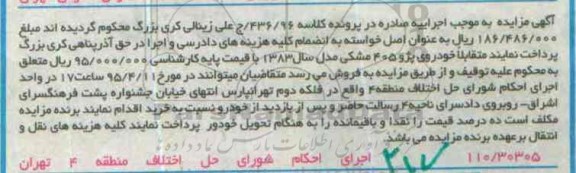 آگهی مزایده به موجب اجراییه صادره در پرونده کلاسه ۴۳۶/۹۶/ج علی زینالی کری بزرگ محکوم گردیده اند مبلغ
۱۸۶/۴۸۶/۰۰۰ ریال به عنوان اصل خواسته به انضمام کلیه هزینه های دادرسی و اجرا در حق آذر پناهی کری بزرگ
پرداخت نمایند متقابلا خودروی پژو ۴۰۵ مشکی مدل سال ۱۳۸۳ با قیمت پایه کارشناسی ۹۵/۰۰۰/۰۰۰ ریال متعلق
به محکوم علیه توقیف و از طریق مزایده به فروش می رسد متقاضیان میتوانند در مورخ ۹۵/۴/۱۱ ساعت ۱۷ در واحد
اجرای احکام شورای حل اختلاف منطقه ۴ واقع در فلکه دوم تهرانپارس انتهای خیابان جشنواره پشت فرهنگسرای
اشراق- روبروی دادسرای ناحیه ۴ رسالت حاضر و پس از بازدید از خودرو نسبت به خرید اقدام نمایند برنده مزایده
مکلف است ده درصد قیمت را نقدا و باقیمانده را به هنگام تحویل خودرو پرداخت نمایند کلیه هزینه های نقل و
انتقال بر عهده برنده مزایده می باشد
۱۱۰/۳۰۳۰۵ اجرای احکام شورای حل اختلاف منطقه ۴ تهران